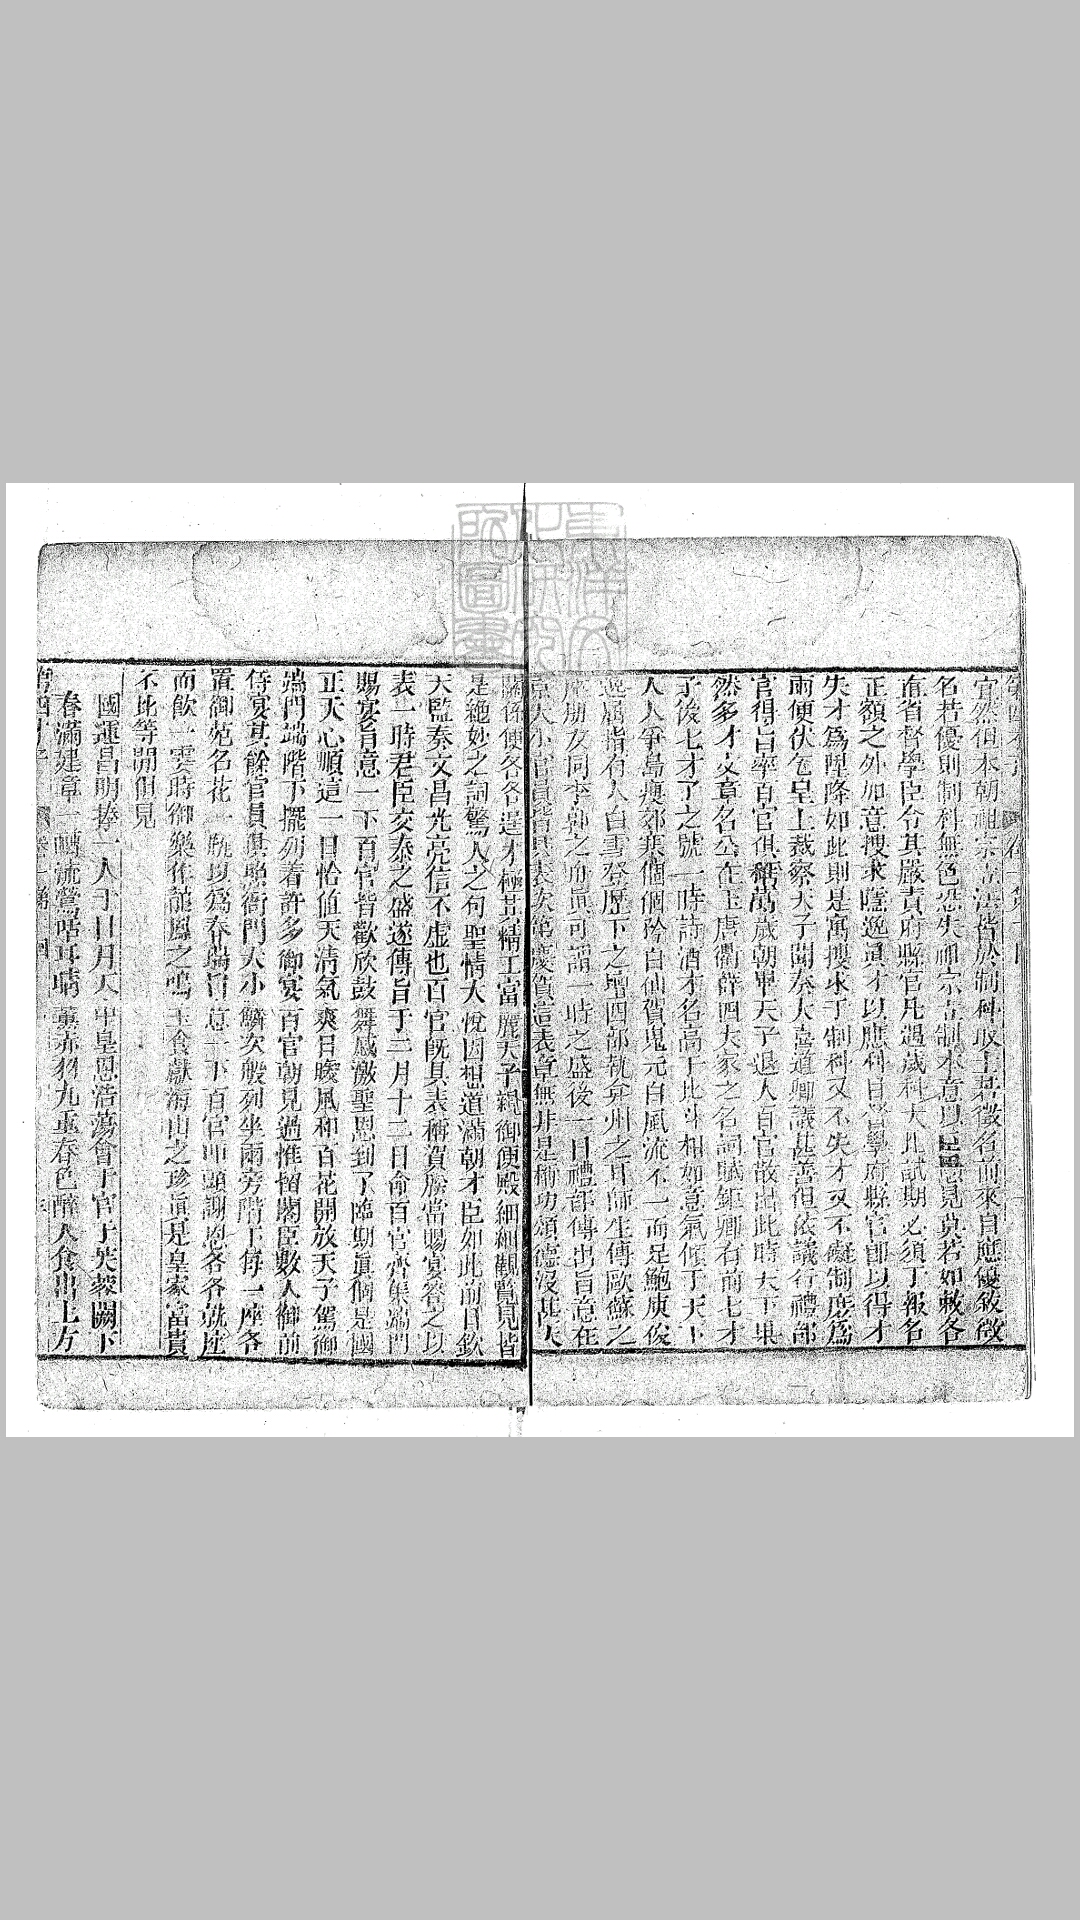 宜然但本朝祖宗立法皆於制科取士若徵名而來自應優敘徵
名若優則制科無色恐失祖宗立制本意以臣愚見莫若如敕各
直省督學臣令其嚴責府縣官凡遇歲科大比試期必須于報名
正額之外加意搜求隱逸眞才以應科目督學府縣官卽以得才
失才爲陞降如此則是寓搜求于制科又不失才又不礙制度爲
兩便伏乞皇上裁察天子聞奏大喜道卿議甚善但依議行禮部
官得旨率百官俱稱萬歲朝畢天子退入百官散出此時天下果
然多才文章名公在玉唐衢薛四大家之名詞賦鉅卿有前七才
子後七才子之號一時詩酒才名高于北斗相如意氣傾于天上
人人爭島瘦郊寒個個矜白仙賀鬼元白風流不一而足鮑庾俊
逸屈指有人白雪登歷下之壇四部執弇州之耳師生傳歐蘇之
座朋友同李郭之舟眞可謂一時之盛後一日禮部傳出旨意在
京大小官員皆具表次第慶賀這表章無非是稱功頌德沒甚大
關係便各各逞才極其精工富麗天子親御便殿細細觀覽見皆
是絶妙之詞驚人之句聖情大悅因想道滿朝才臣如此前日欽
天監奏文昌光亮信不虛也百官旣具表稱賀朕當賜宴答之以
表一時君臣交泰之盛遂傳旨于三月十二日命百官齊集端門
賜宴旨意一下百官皆歡欣鼓舞感激聖恩到了臨期眞個是國
正天心順這一日恰值天清氣爽日暖風和百花開放天子駕御
端門端階下擺列着許多御宴百官朝見過惟留閣臣數人御前
侍宴其餘官員俱照衙門大小鱗次般列坐兩旁階下每一座各
置御苑名花一瓶以爲春瑞旨意一下百官叩頭謝恩各各就座
而飲一霎時御樂作龍鳳之鳴玉食獻海山之珍眞是皇家富貴
不比等閒但見
國運昌明捧一人于日月天中皇恩浩蕩會于官于芙蓉闕下
春滿建章一囀流鶯啼耳聒薰赤羽九重春色醉人食出上方